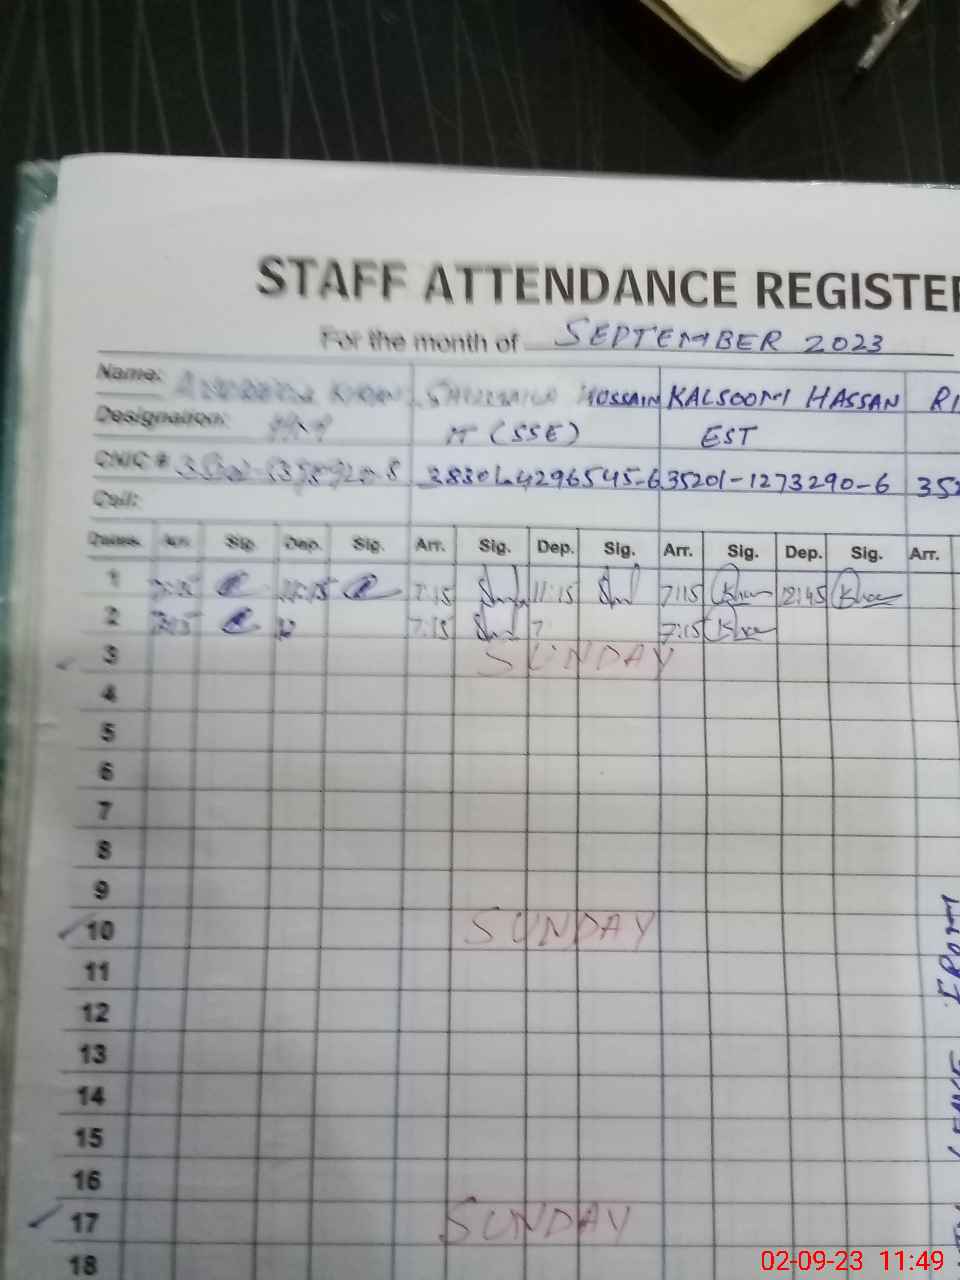 STAFF ATTENDANCE REGISTER
For the month of SEPTEMBER 2023
Name: KHAN HUSSAIN KALSOOM HASSAN RI
Designation: (SSE) EST
CNIC # 38301-4296545-6 35201-1273290-6 352
Cell:
Dates Arr. Sig. Dep. Sig. Arr. Sig. Dep. Sig. Arr. Sig. Dep. Sig. Arr.
1 7:15 11:15 7:15 12:45
2 7:15 7:15
3 SUNDAY
4
5
6
7
8
9
10 SUNDAY
11
12
13
14
15
16
17 SUNDAY
18
LEAVE FROM
02-09-23 11:49